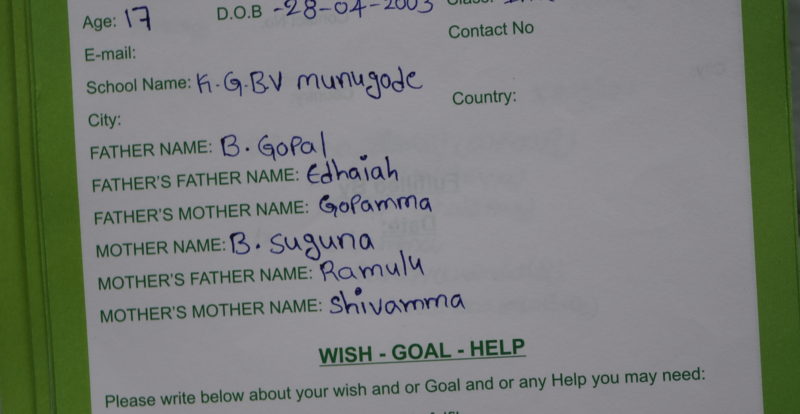 Age: 17 D.O.B -28-04-2003
E-mail: Contact No
School Name: K.G.BV munugode
City: Country:
FATHER NAME: B. Gopal
FATHER'S FATHER NAME: Edhaiah
FATHER'S MOTHER NAME: Gopamma
MOTHER NAME: B. Suguna
MOTHER'S FATHER NAME: Ramulu
MOTHER'S MOTHER NAME: Shivamma
WISH - GOAL - HELP
Please write below about your wish and or Goal and or any Help you may need: